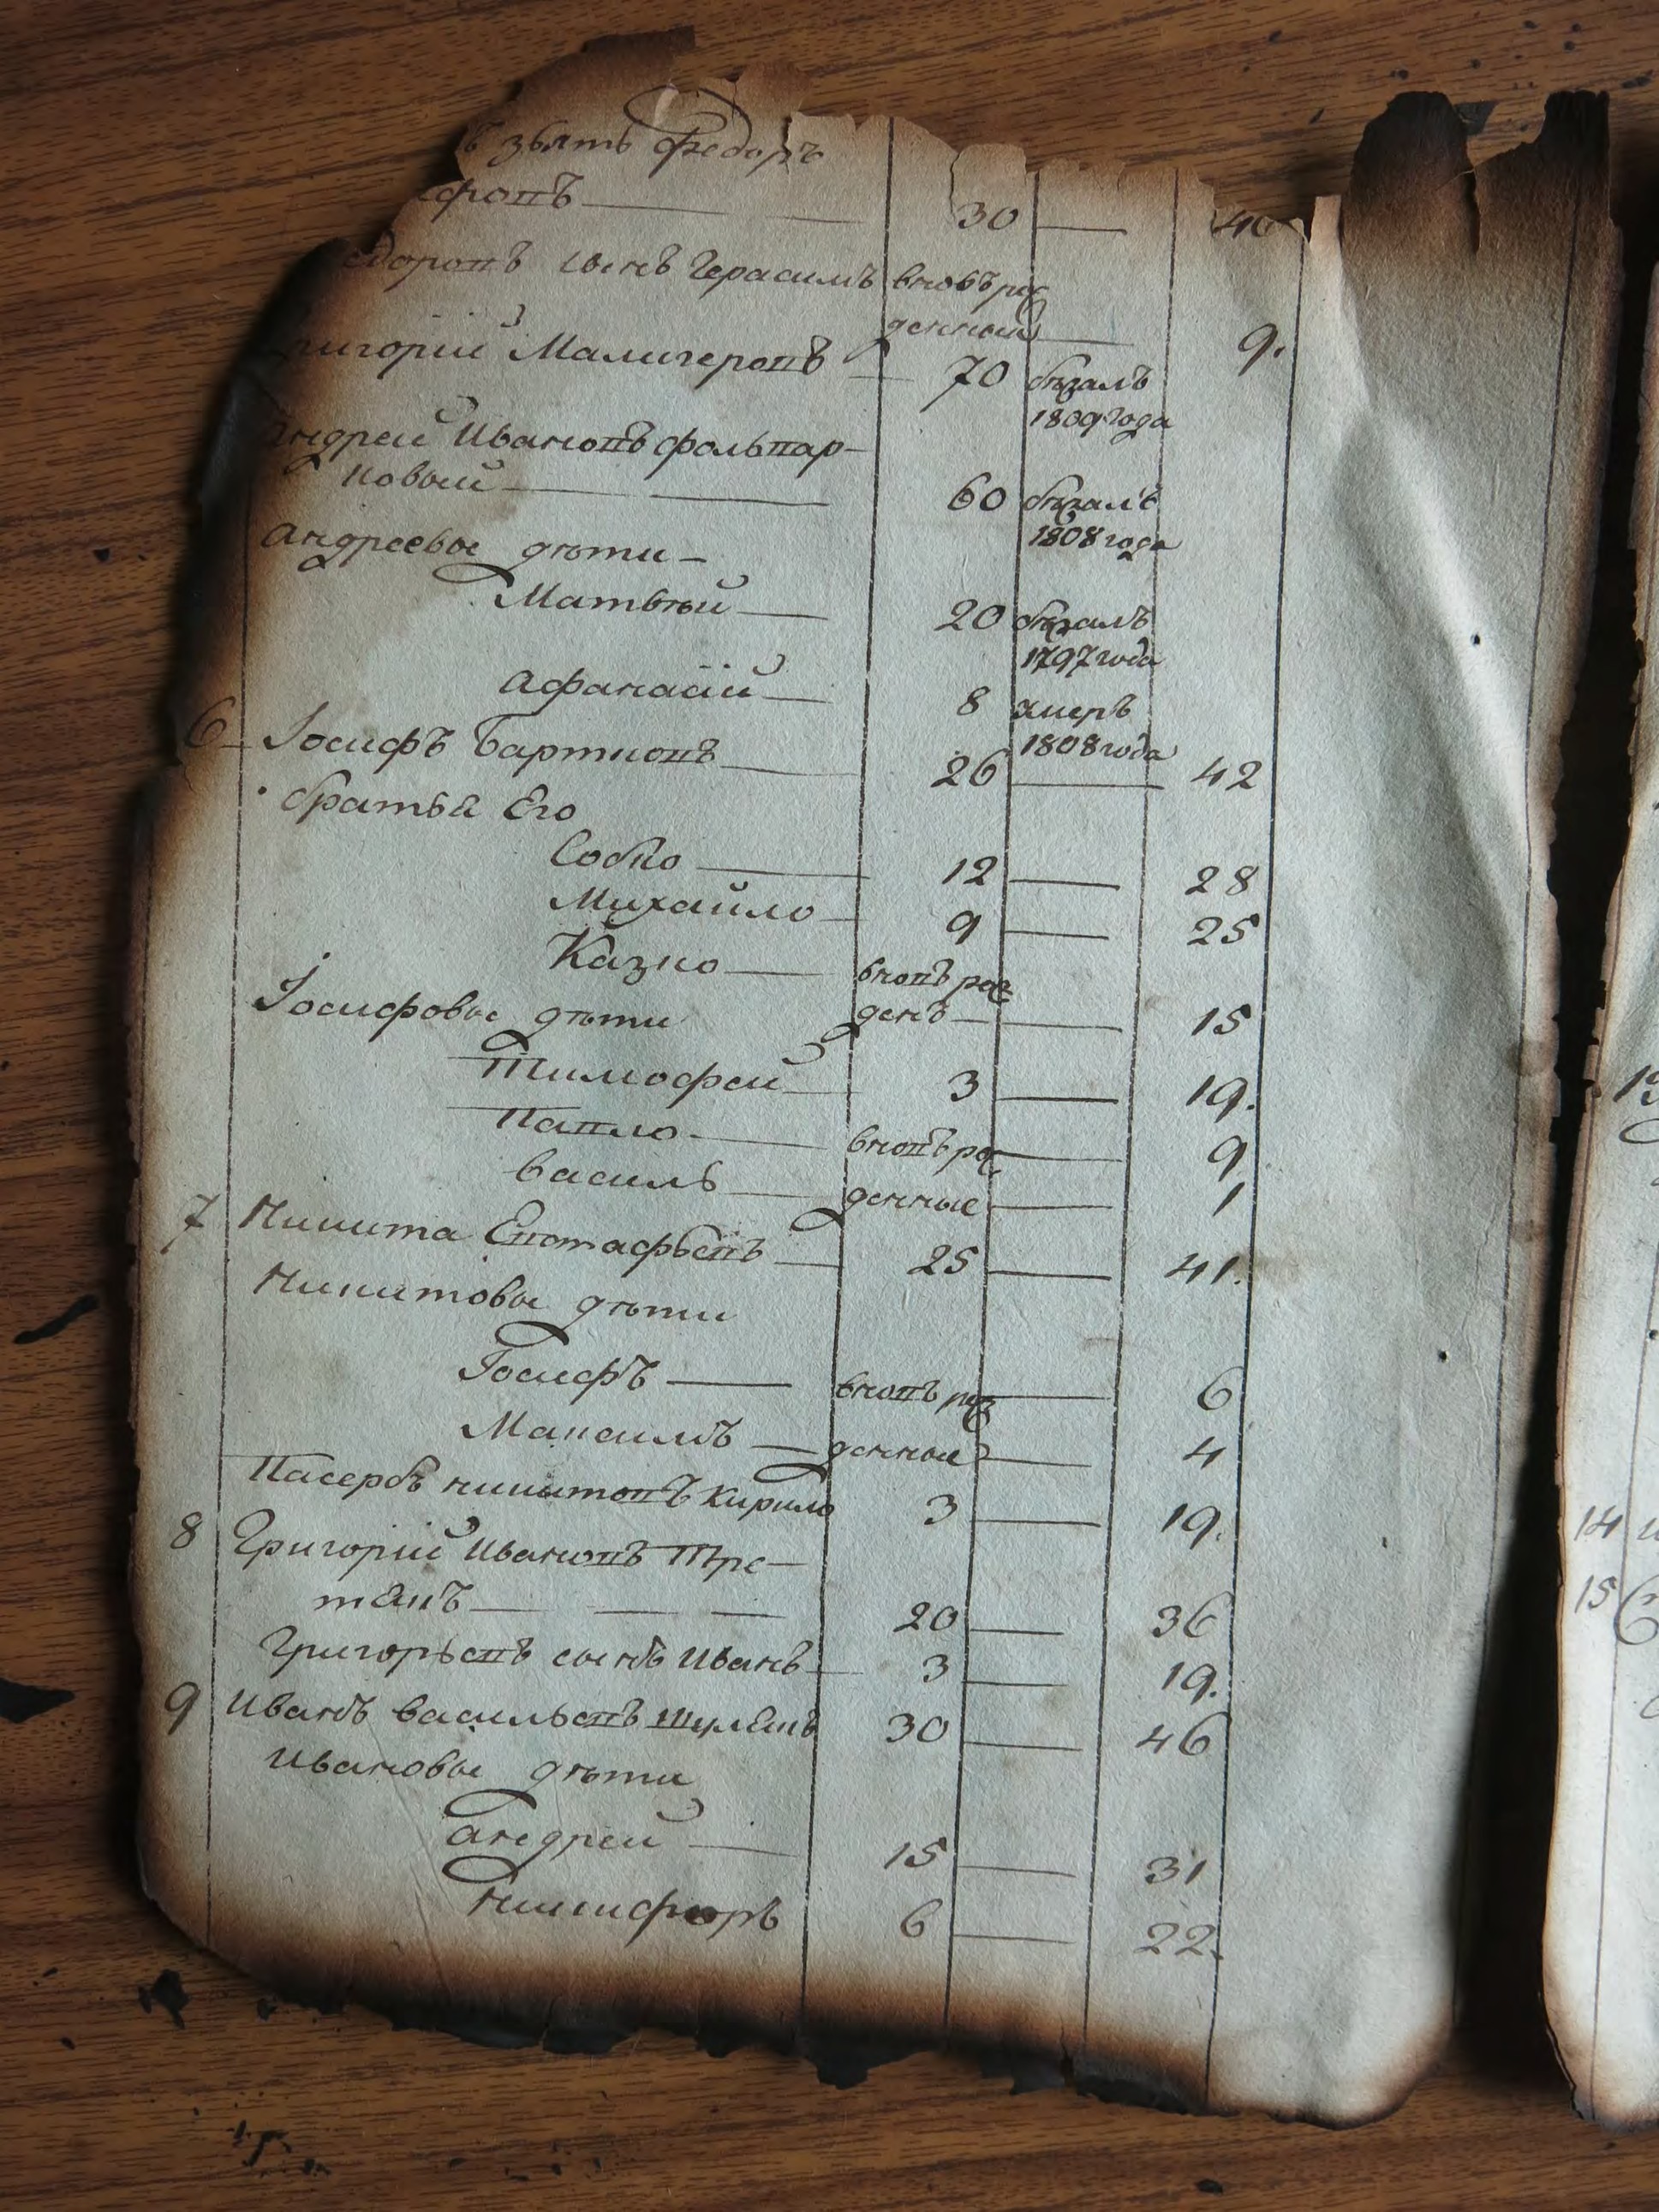 зять Федоръ
30 — 46
Сынъ Герасимъ вновь рож
денный — 9.
Григорій Маличеровъ — 70 бѣжалъ
1809 года
Андрей Ивановъ фольвар-
ковый — 60 бѣжалъ
1808 года
Андреевы дѣти —
Матвѣй — 20 бѣжалъ
1797 года
Афанасій — 8 умеръ
1808 года
6 Іосифъ Бартковъ — 26 — 42
братья Его
Собко — 12 — 28
Михайло — 9 — 25
Казко — вновь рож
Іосифовы дѣти денъ — 15
Тимофей — 3 — 19.
Павло — вновь рож — 9
Василь — денные — 1
7 Никита Евстафьевъ — 25 — 41.
Никитовы дѣти
Іосифъ — вновь рож — 6
Максимъ — денные — 4
Пасербъ никитовъ Кирило 3 — 19.
8 Григорій Ивановъ Тре-
тякъ — 20 — 36
Григорьевъ сынъ Иванъ — 3 — 19.
9 Иванъ Васильевъ Шулякъ 30 — 46
Ивановы дѣти
Андрей — 15 — 31
Никифоръ 6 — 22.
14
15